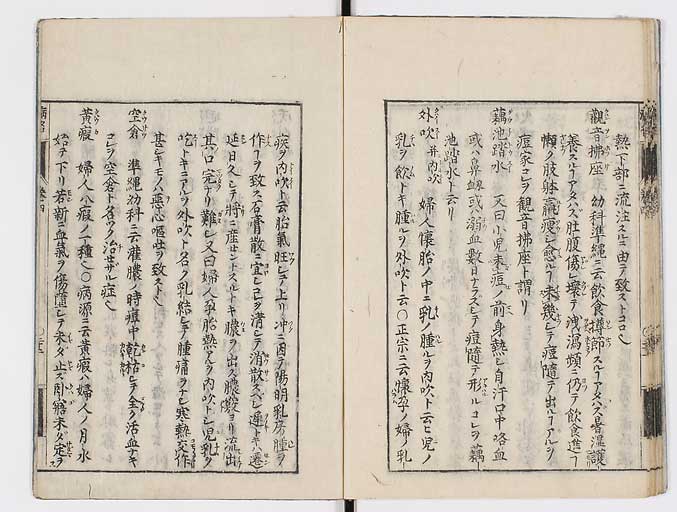 熱下部ニ流注スルニ由テ致ストコロ也
觀音拂座 幼科準繩ニ云飲食撙節スル丁アタハス暑溫護
養スル丁アタハス肚腹傷レ壞テ洩瀉頻ニ仍テ飲食進丁
懶ク肢躰羸痩シ愈ルヿ未幾シテ痘隨テ出ルヿアルヲ
痘家コレヲ觀音拂座ト謂リ
藕池踏水 又曰小児未痘ノ前身熱シ自汗口中咯血
或ハ鼻衂或ハ溺血數日ナラズシテ痘隨テ形ルコレヲ藕
池踏水ト云リ
外吹 并内吹 婦人懐胎ノ中ニ乳ノ腫ルヲ内吹ト云ヒ児ノ
乳ヲ飲トキ腫ルヲ外吹ト云〇正宗ニ云懐孕ノ婦乳
疾ヲ内吹ト云胎氣旺シテ上リ冲ニ因テ陽明乳房腫ヲ
作ヿヲ致ス石膏散ニ宜シ已ヲ清シテ消散スベシ遲トキハ遷
延日久シテ將ニ産セントスルトキ膿ヲ出ス膿ヨリ流出
其口完リ難シ又曰婦人孕胎熱アルヲ内吹トシ児乳ヲ
吃トキニアルヲ外吹ト名ク乳結シテ腫痛ヲナシ寒熱交作
甚シキモノハ惡心嘔吐ヲ致スト也
空倉 準繩幼科ニ云灌膿ノ時痘中乾枯シテ全ク活血ナキ
コレヲ空倉ト名ツク治セザル症也
黄瘕 婦人八瘕ノ一種也〇病源ニ云黄瘕ハ婦人ノ月水
始テ下リ若新ニ血氣ヲ傷隨シテ未ダ止ズ臥寤未ダ定ラ